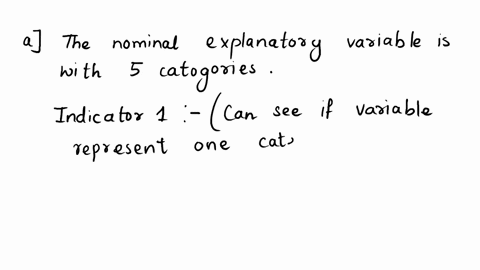 a] The nominal explanatory variable is
with 5 catogories.
Indicator 1 :- (Can see if variable
represent one cat